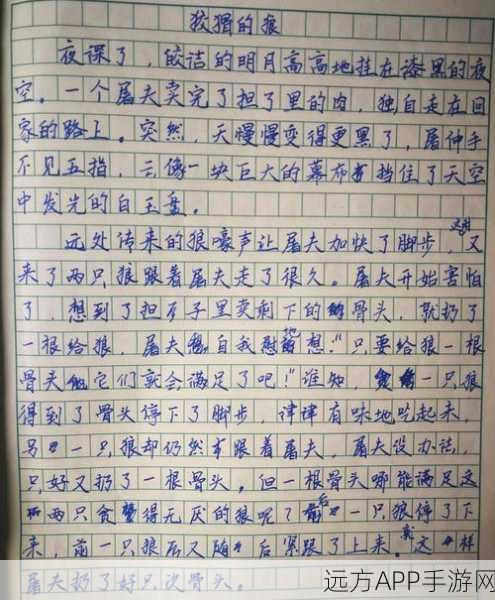 狡猾的狼
夜深了，皎洁的明月高高地挂在漆黑的夜
空。一个屠夫卖完了担子里的肉，独自走在回
家的路上。突然，天慢慢变得更黑了，屠伸手
不见五指，云像一块巨大的幕布挡住了天空
中发光的白玉盘。
远处传来的狼嚎声让屠夫加快了脚步，这时又
来了两只狼跟着屠夫走了很久。屠夫开始害怕
了，想到了担子里卖剩下的骨头，就扔了
一根给狼，屠夫自我慰藉地想："只要给狼一根
骨头它们就会满足了吧！"谁知，一只狼
得到了骨头停下了脚步，津津有味地吃起来，
另一只狼却仍然跟着屠夫，屠夫没办法，
只好又扔了一根骨头。但一根骨头哪能满足这
两只贪得无厌的狼呢？后一只狼停了下
来，前一只狼又随后紧跟了上来。就这样
屠夫扔了好几次骨头。
远方APP手游网